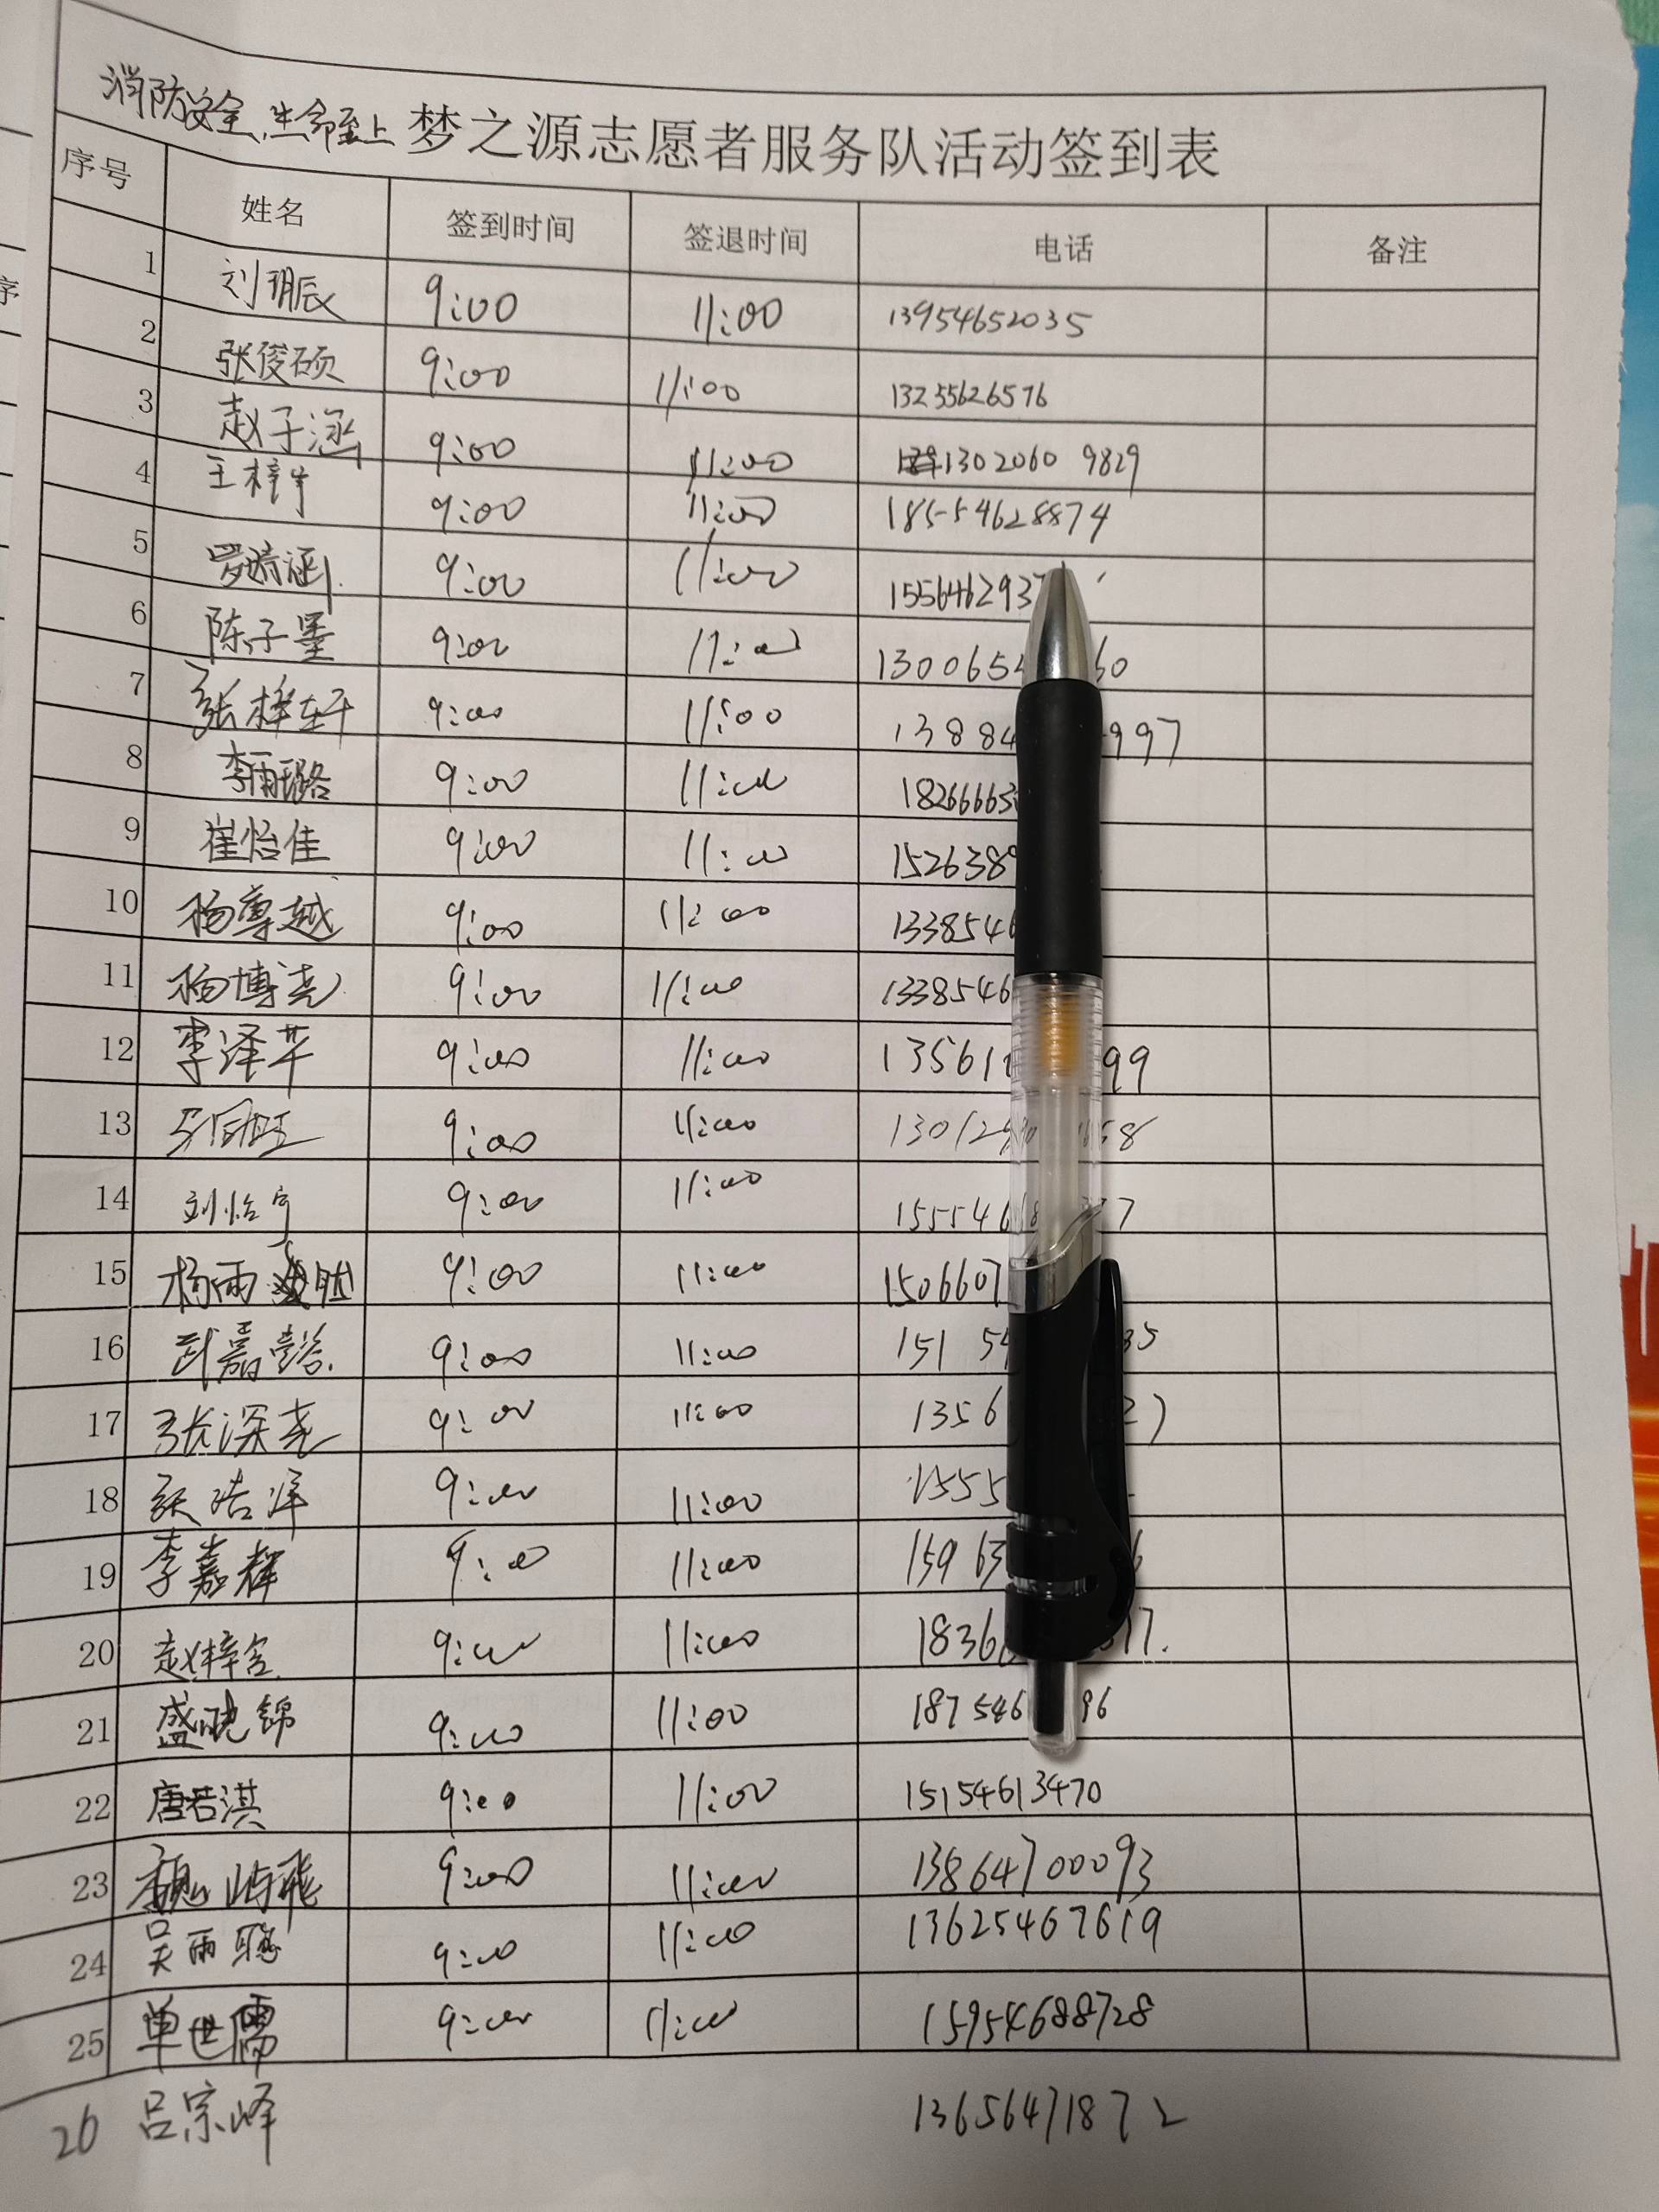 消防安全,生命至上 梦之源志愿者服务队活动签到表
序号 姓名 签到时间 签退时间 电话 备注
1 刘玥辰 9:00 11:00 13954652035
2 张俊硕 9:00 11:00 13255626576
3 赵子涵 9:00 11:00 1302060 9829
4 王梓宇 9:00 11:00 18554628874
5 罗琦涵 9:00 11:00 1556462937
6 陈子墨 9:00 11:00 1300654 60
7 张梓轩 9:00 11:00 13884 997
8 李雨璐 9:00 11:00 18266663
9 崔怡佳 9:00 11:00 1526389
10 杨尊越 9:00 11:00 1338546
11 杨博尧 9:00 11:00 1338546
12 李泽华 9:00 11:00 13561 99
13 9:00 11:00 13012 58
14 刘怡宁 9:00 11:00 155546 77
15 杨雨 9:00 11:00 1506607
16 武嘉 9:00 11:00 151 54 35
17 张深尧 9:00 11:00 1356 27
18 浩洋 9:00 11:00 1555
19 李嘉辉 9:00 11:00 159 63 6
20 赵梓含 9:00 11:00 1836 17.
21 盛晓锦 9:00 11:00 187546 96
22 唐若淇 9:00 11:00 15154613470
23 魏屿飛 9:00 11:00 13864700093
24 吴雨聪 9:00 11:00 13625467619
25 单世儒 9:00 11:00 15954688728
26 吕宗峰 13656471872
序